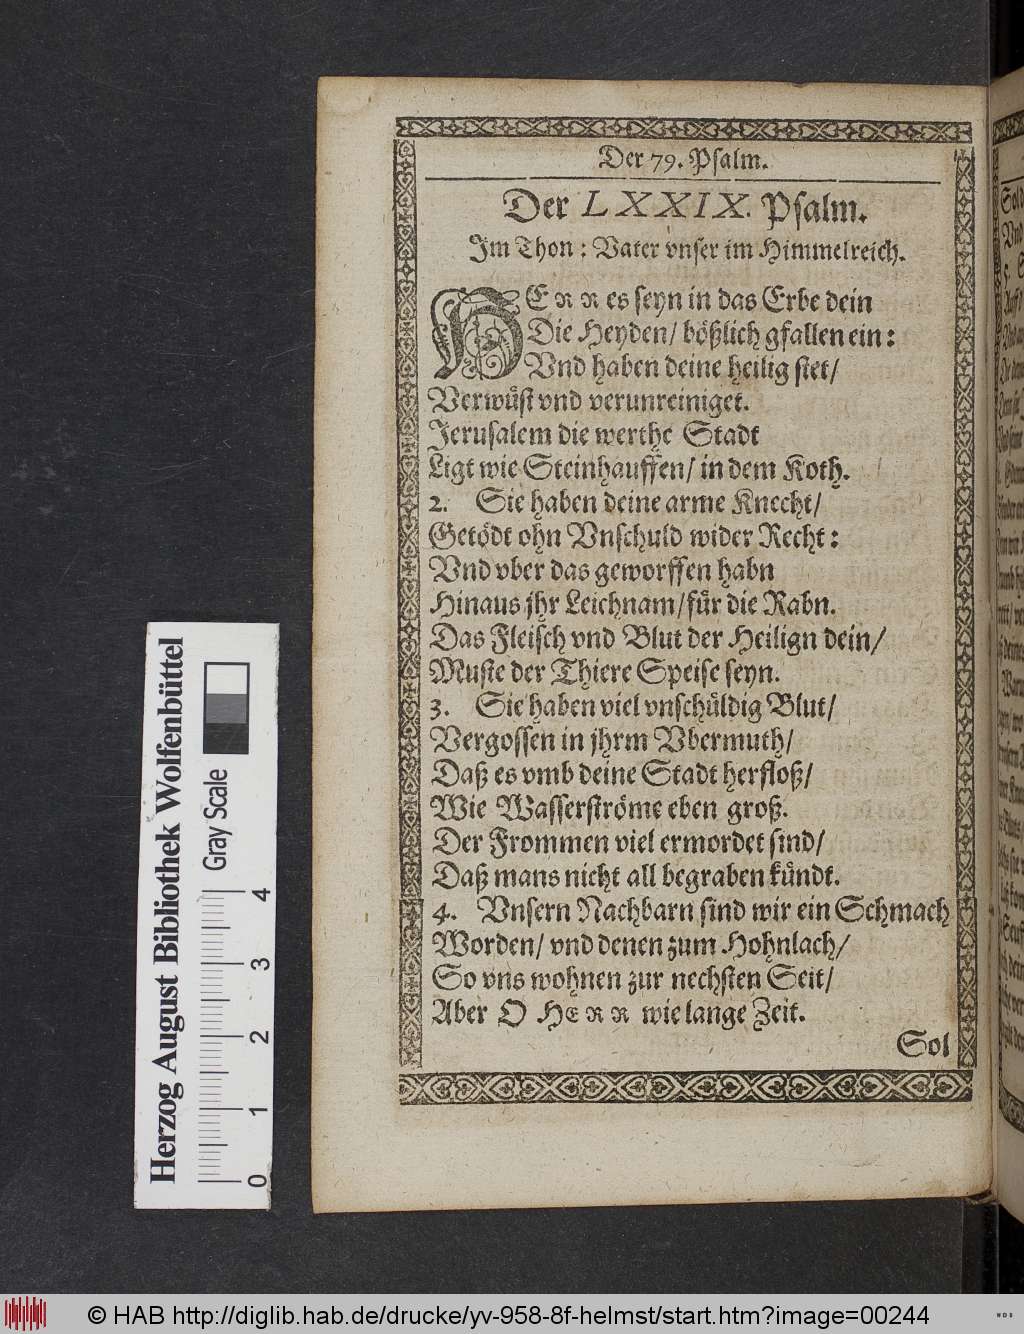 Der 79. Psalm.
Der LXXIX. Psalm.
Im Thon: Vater vnser im Himmelreich.
HERR es seyn in das Erbe dein
Die Heyden/ bößlich gfallen ein:
Vnd haben deine heilig stet/
Verwüst vnd verunreiniget.
Jerusalem die werthe Stadt
Ligt wie Steinhauffen/ in dem Koth.
2. Sie haben deine arme Knecht/
Getödt ohn Vnschuld wider Recht:
Vnd vber das geworffen habn
Hinaus jhr Leichnam/ für die Rabn.
Das Fleisch vnd Blut der Heilign dein/
Muste der Thiere Speise seyn.
3. Sie haben viel vnschüldig Blut/
Vergossen in jhrm Vbermuth/
Daß es vmb deine Stadt herfloß/
Wie Wasserströme eben groß.
Der Frommen viel ermordet sind/
Daß mans nicht all begraben kündt.
4. Vnsern Nachbarn sind wir ein Schmach
Worden/ vnd denen zum Hohnlach/
So vns wohnen zur nechsten Seit/
Aber O HERR wie lange Zeit.
Sol
Herzog August Bibliothek Wolfenbüttel
Gray Scale
0 1 2 3 4
© HAB http://diglib.hab.de/drucke/yv-958-8f-helmst/start.htm?image=00244